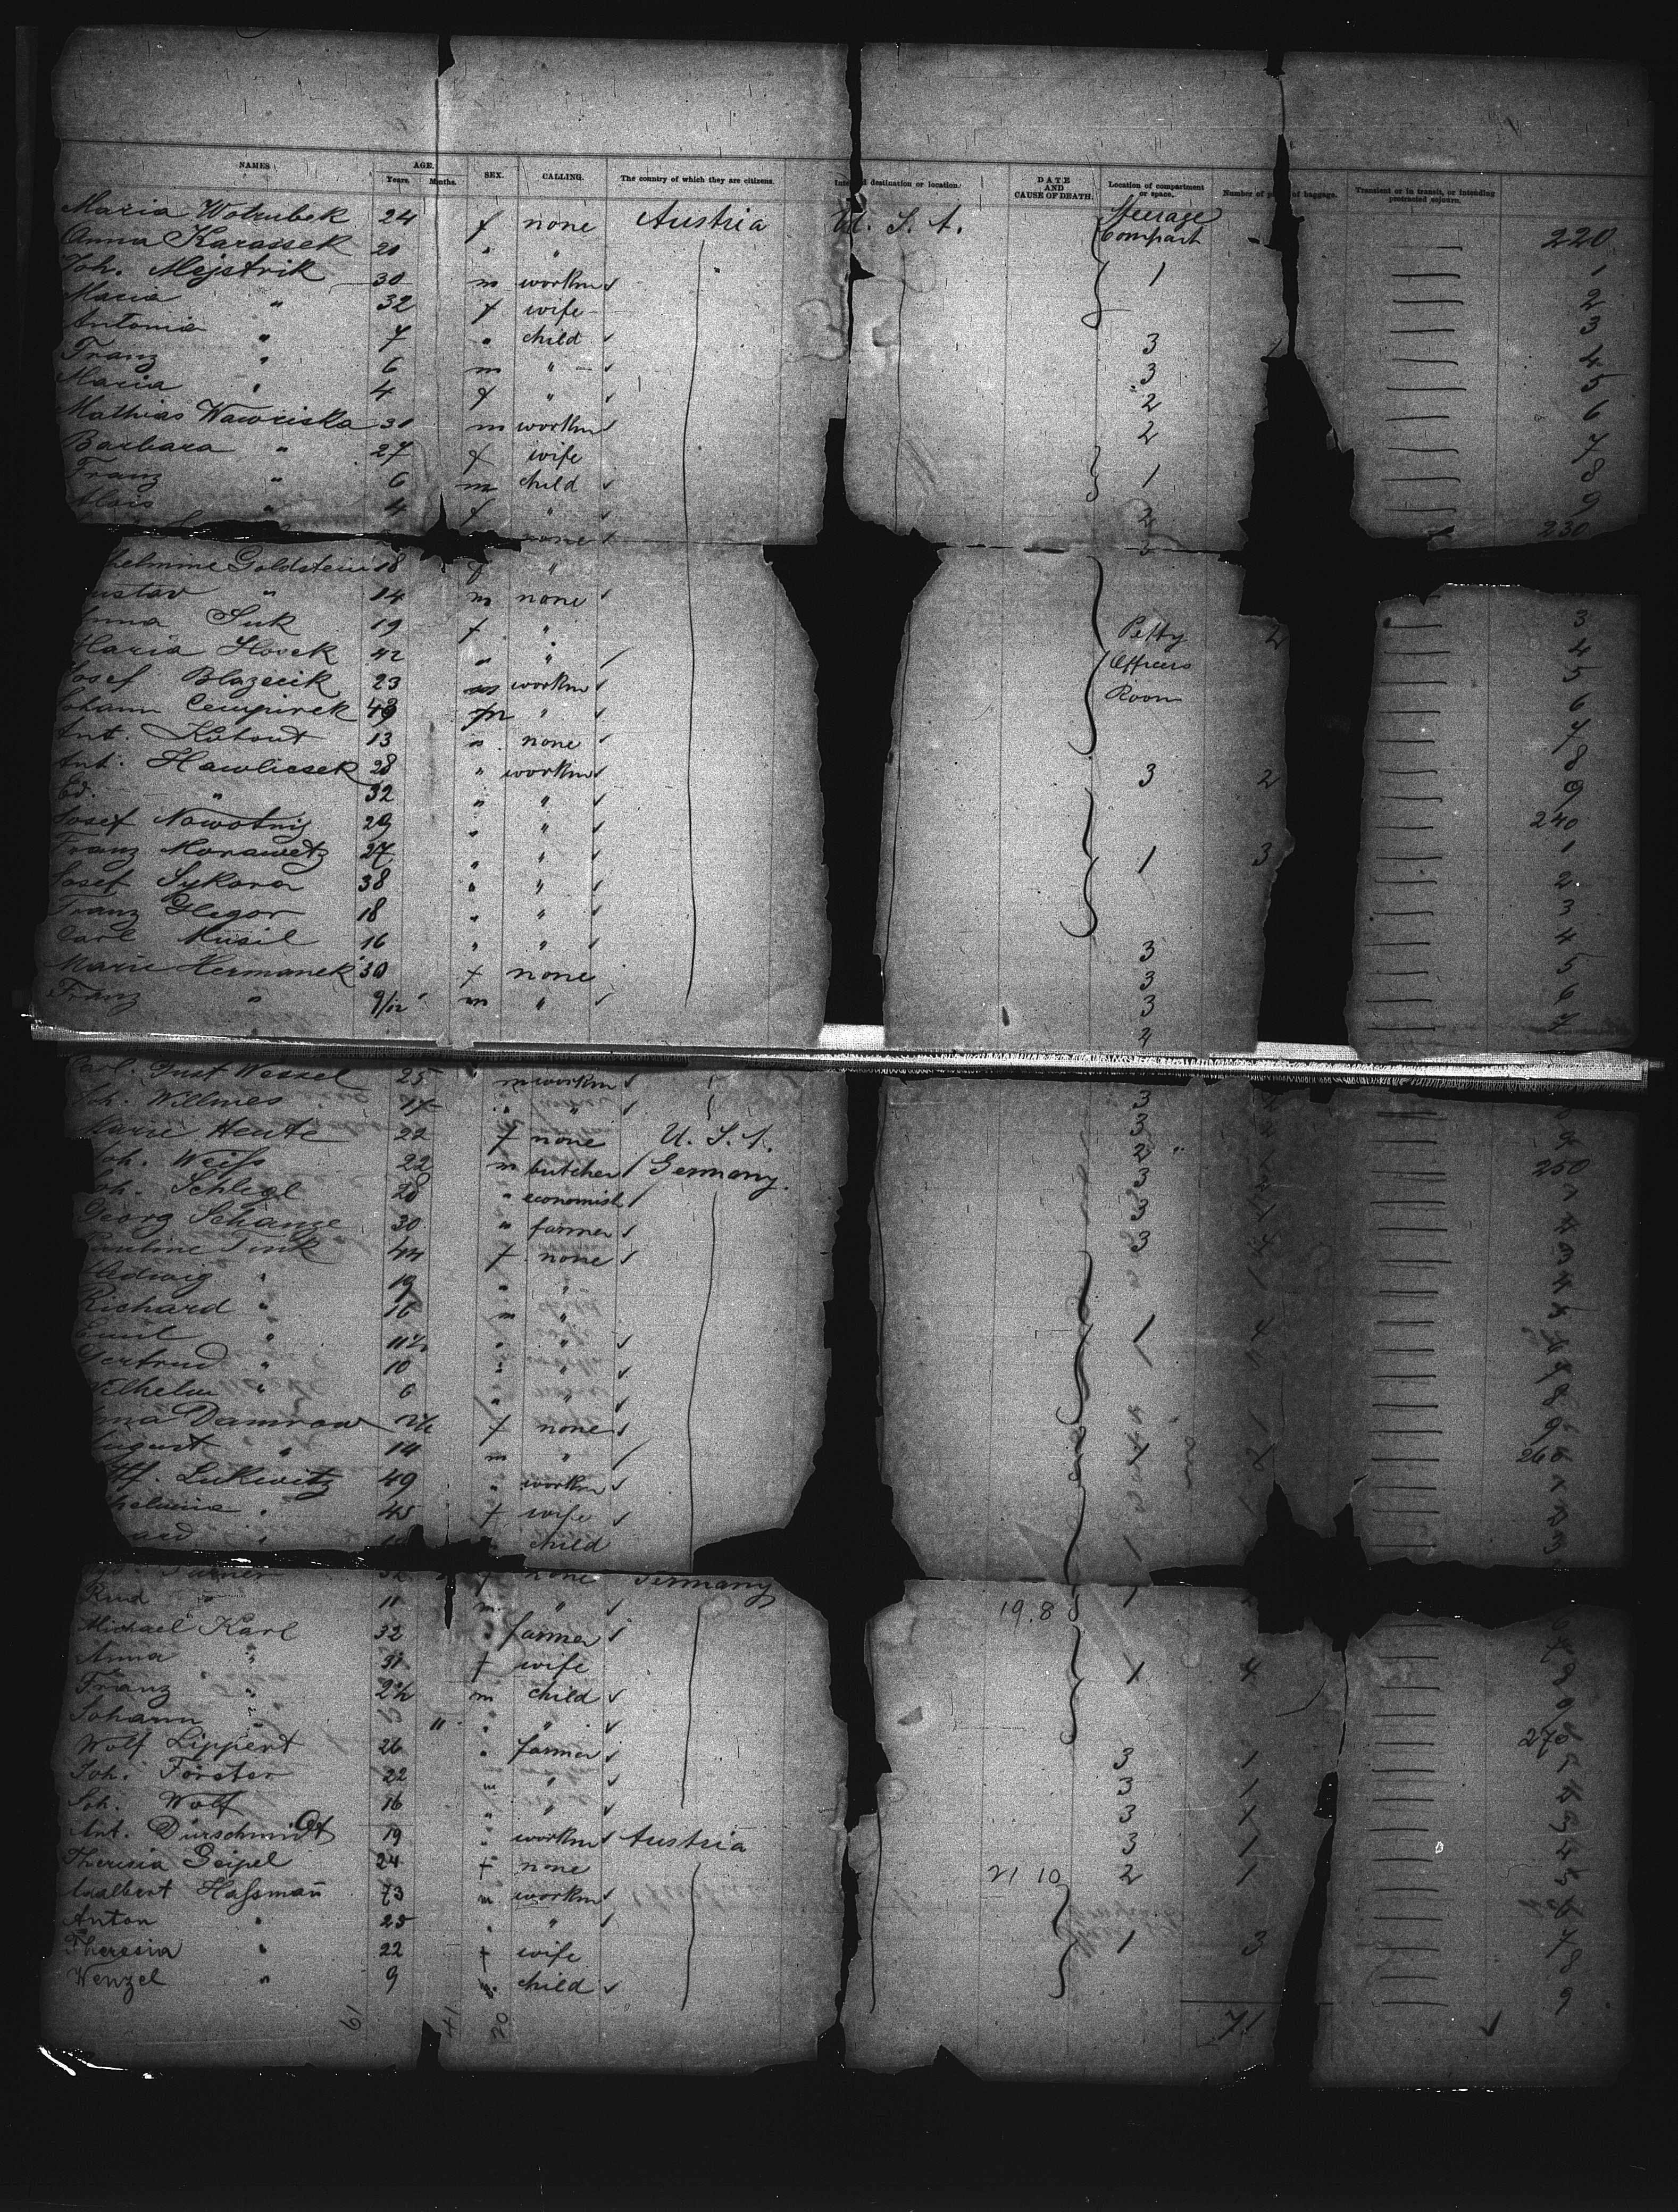 NAMES AGE. SEX. CALLING. The country of which they are citizens. destination or location. DATE AND CAUSE OF DEATH. Location of compartment or space. Number of of baggage. Transient or in transit, or intending protracted sojourn.
Years. Months.
Maria Wotrubek 24 f none Austria U. S. A. Steerage Compart 220
Anna Karassek 20 " " 1
Joh. Mejstrik 30 m workm 1 2
Maria " 32 f wife 3
Antonia " 7 " child 3 4
Franz " 6 m " 3 5
Maria " 4 f " 2 6
Mathias Wawriska 31 m workm 2 7
Barbara " 27 f wife 8
Franz " 6 m child 1 9
Alois " 4 f " 2 230
none
helmine Goldstein 18 f "
ustav " 14 m none 3
nna Suk 19 f " Petty 2 4
Maria Hovek 42 " " Officers 5
Josef Blazecik 23 m workm Room 6
Johann Cempirek 43 m " 7
Ant. Kutout 13 " none 8
Ant. Hawlicsek 28 " workm 3 2 9
Ed. " 32 " " 240
Josef Nowotnij 29 " " 1
Franz Morawetz 27 " " 1 3 2
Josef Sykora 38 " " 3
Franz Glegor 18 " " 4
Carl Musil 16 " " 3 5
Marie Hermanek 30 f none 3 6
Franz " 9/12 m " 3 7
4
Carl. Gust Wessel 25 m workm 3
Joh. Willmes 17 " " 3 9
Marie Heute 22 f none U. S. A. 2 250
Joh. Weiss 22 m butcher Germany. 3 1
Joh. Schlegl 28 " economist 3
Georg Schange 30 " farmer 3 3
Pauline Tink 44 f none 4
Hedwig " 19 " "
Richard " 16 m "
Emil " 11½ " " 1 4 7
Gertrud " 10 " " 8
Wilhelm " 6 " " 9
nna Damrow f none 260
August " 14 m " 1
Lukwitz 49 " workm 2
helmine " 45 f wife 3
ard " child 1
Turner 32 f none Germany
Rud " 11 m " 19.8 1
Michael Karl 32 " farmer 7
Anna " 31 f wife 1 4 8
Franz " 2½ m child 9
Johann " 11 " " 270
Wolf Lippert 26 " farmer 3 1 1
Joh. Förster 22 m " 3 1 2
Joh. Wolf 16 " " 3 1 3
Ant. Dürschmidt 19 " workm Austria 3 1 4
Theresia Geipel 24 f none 21 10 2 1 5
Adalbert Hassmann 73 m workm 6
Anton " 25 " " 7
Theresia " 22 f wife 1 3 8
Wenzel " 9 m child 9
61 41 20 71